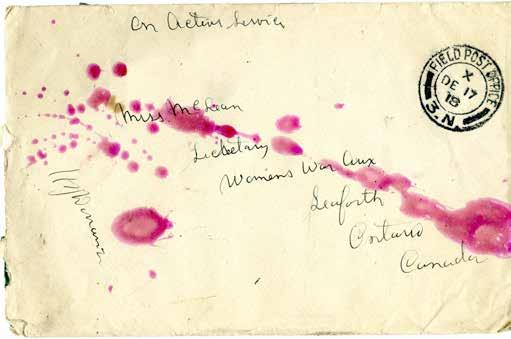 On Active Service
FIELD POST OFFICE
X
DE 17
18
3.N.
Miss McLean
Secretary
Womens War Aux
Seaforth
Ontario
Canada